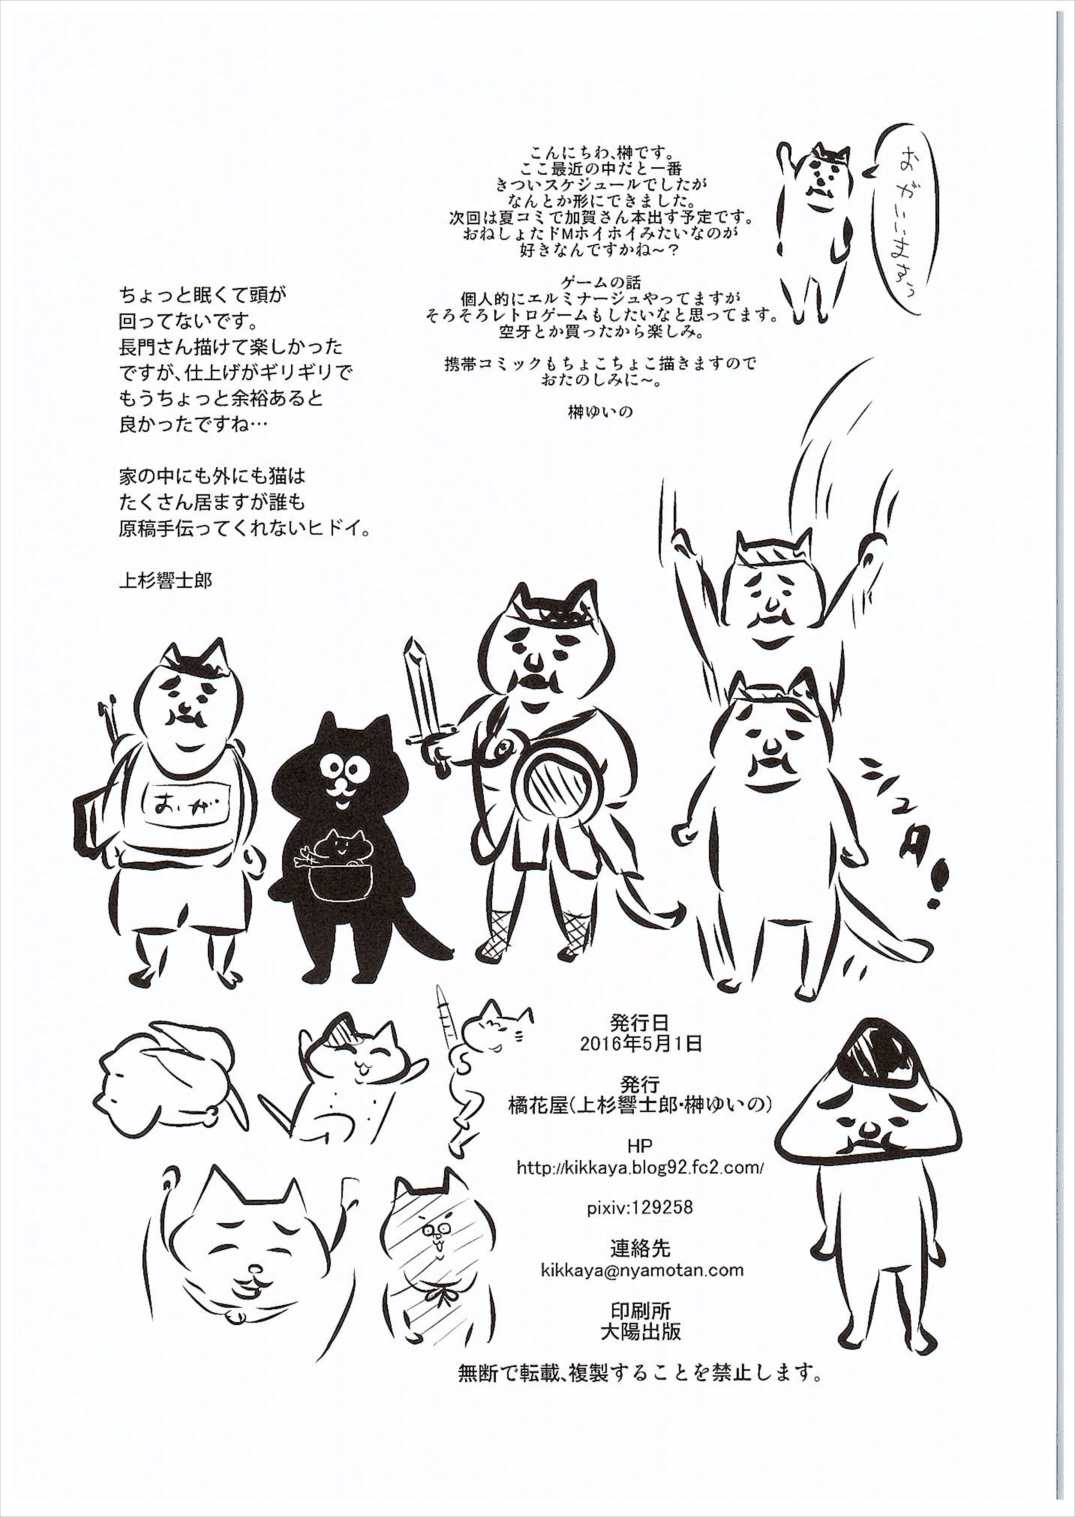 こんにちわ、榊です。
ここ最近の中だと一番
きついスケジュールでしたが
なんとか形にできました。
次回は夏コミで加賀さん本出す予定です。
おねしょたドMホイホイみたいなのが
好きなんですかね～？
ゲームの話
個人的にエルミナージュやってますが
そろそろレトロゲームもしたいなと思ってます。
空牙とか買ったから楽しみ。
携帯コミックもちょこちょこ描きますので
おたのしみに～。
榊ゆいの
ちょっと眠くて頭が
回ってないです。
長門さん描けて楽しかった
ですが、仕上げがギリギリで
もうちょっと余裕あると
良かったですね…
家の中にも外にも猫は
たくさん居ますが誰も
原稿手伝ってくれないヒドイ。
上杉響士郎
おが
シュタ!
発行日
2016年5月1日
発行
橘花屋(上杉響士郎・榊ゆいの)
HP
http://kikkaya.blog92.fc2.com/
pixiv:129258
連絡先
kikkaya@nyamotan.com
印刷所
大陽出版
無断で転載、複製することを禁止します。